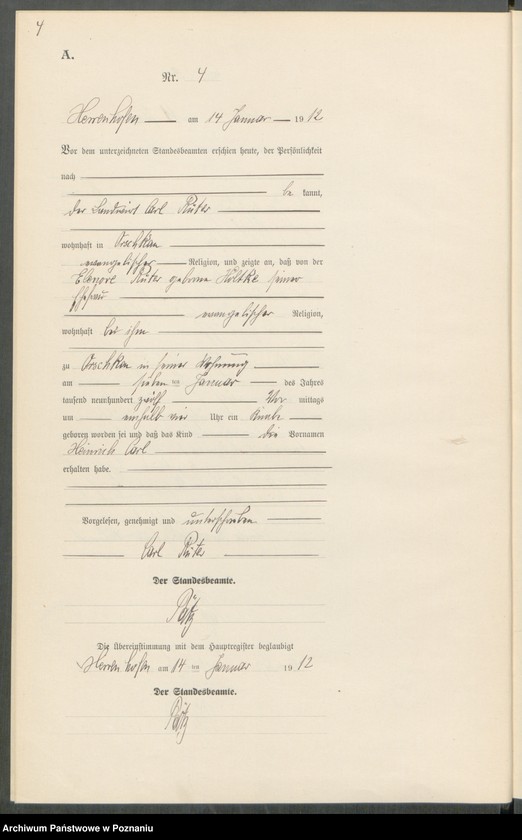 4
A.
Nr. 4
Herrenhofen am 14 Januar 1912
Vor dem unterzeichneten Standesbeamten erschien heute, der Persönlichkeit
nach
be kannt,
der Landwirt Carl Rüter
wohnhaft in Orschkau
evangelischer Religion, und zeigte an, daß von der
Eleonore Rüter geborene Höltke seiner
Ehefrau
evangelischer Religion,
wohnhaft bei ihm
zu Orschkau in seiner Wohnung
am sieben ten Januar des Jahres
tausend neunhundert zwölf Vor mittags
um einhalb vier Uhr ein Knabe
geboren worden sei und daß das Kind die Vornamen
Heinrich Carl
erhalten habe.
Vorgelesen, genehmigt und unterschrieben
Carl Rüter
Der Standesbeamte.
Die Übereinstimmung mit dem Hauptregister beglaubigt
Herrenhofen am 14 ten Januar 1912
Der Standesbeamte.
Archiwum Państwowe w Poznaniu